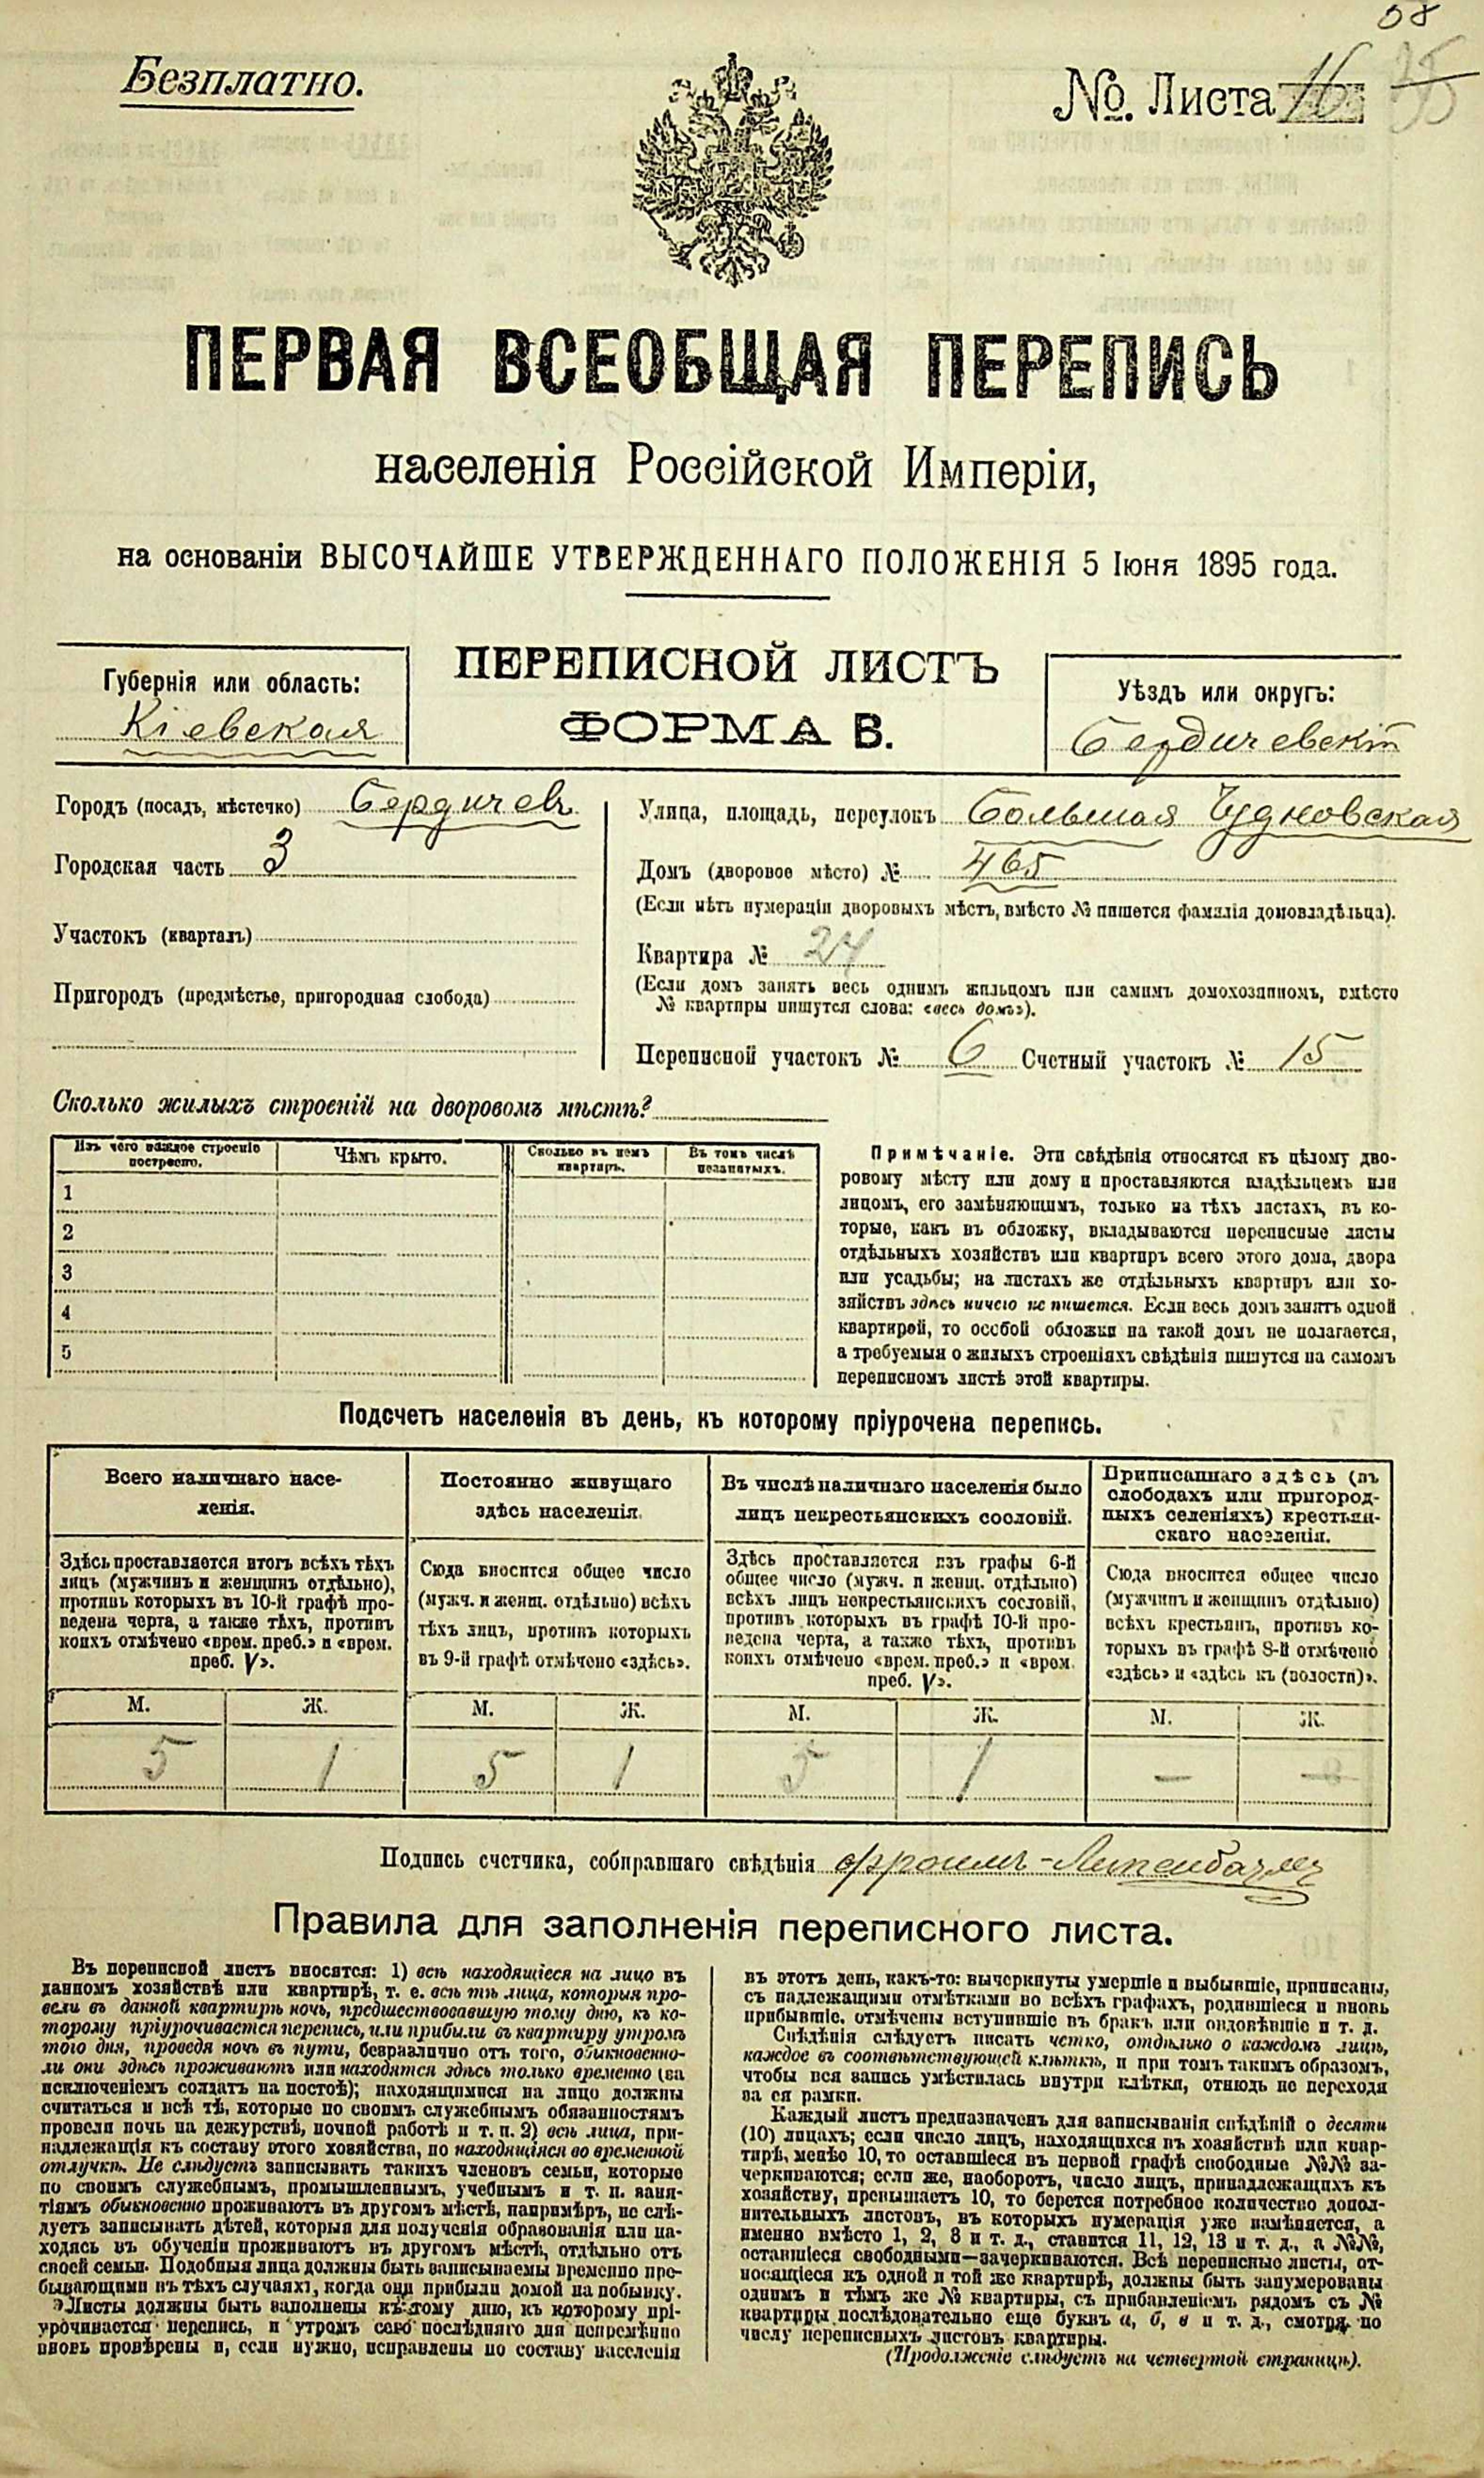 58
Безплатно.
№. Листа 16
ПЕРВАЯ ВСЕОБЩАЯ ПЕРЕПИСЬ
населенія Россійской Имперіи,
на основаніи ВЫСОЧАЙШЕ УТВЕРЖДЕННАГО ПОЛОЖЕНІЯ 5 Іюня 1895 года.
ПЕРЕПИСНОЙ ЛИСТЪ
ФОРМА В.
Губернія или область:
Кіевская
Уѣздъ или округъ:
Бердичевскій
Городъ (посадъ, мѣстечко) Бердичевъ
Городская часть 3
Участокъ (кварталъ)
Пригородъ (предмѣстье, пригородная слобода)
Улица, площадь, переулокъ Большая Чудновская
Домъ (дворовое мѣсто) № 465
(Если нѣтъ нумераціи дворовыхъ мѣстъ, вмѣсто № пишется фамилія домовладѣльца).
Квартира № 24
(Если домъ занятъ весь однимъ жильцомъ или самимъ домохозяиномъ, вмѣсто
№ квартиры пишутся слова: «весь домъ»).
Переписной участокъ № 6 Счетный участокъ № 15
Сколько жилыхъ строеній на дворовомъ мѣстѣ?
Изъ чего каждое строеніе
построено.
Чѣмъ крыто.
Сколько въ немъ
квартиръ.
Въ томъ числѣ
незанятыхъ.
1
2
3
4
5
Примѣчаніе. Эти свѣдѣнія относятся къ цѣлому дво-
ровому мѣсту или дому и проставляются владѣльцемъ или
лицомъ, его замѣняющимъ, только на тѣхъ листахъ, въ ко-
торые, какъ въ обложку, вкладываются переписные листы
отдѣльныхъ хозяйствъ или квартиръ всего этого дома, двора
или усадьбы; на листахъ же отдѣльныхъ квартиръ или хо-
зяйствъ здѣсь ничего не пишется. Если весь домъ занятъ одной
квартирой, то особой обложки на такой домъ не полагается,
а требуемыя о жилыхъ строеніяхъ свѣдѣнія пишутся на самомъ
переписномъ листѣ этой квартиры.
Подсчетъ населенія въ день, къ которому пріурочена перепись.
Всего наличнаго насе-
ленія.
Здѣсь проставляется итогъ всѣхъ тѣхъ
лицъ (мужчинъ и женщинъ отдѣльно),
противъ которыхъ въ 10-й графѣ про-
ведена черта, а также тѣхъ, противъ
коихъ отмѣчено «врем. преб.» и «врем.
преб. V».
М. Ж.
5 1
Постоянно живущаго
здѣсь населенія.
Сюда вносится общее число
(мужч. и женщ. отдѣльно) всѣхъ
тѣхъ лицъ, противъ которыхъ
въ 9-й графѣ отмѣчено «здѣсь».
М. Ж.
5 1
Въ числѣ наличнаго населенія было
лицъ некрестьянскихъ сословій.
Здѣсь проставляется изъ графы 6-й
общее число (мужч. и женщ. отдѣльно)
всѣхъ лицъ некрестьянскихъ сословій,
противъ которыхъ въ графѣ 10-й про-
ведена черта, а также тѣхъ, противъ
коихъ отмѣчено «врем. преб.» и «врем.
преб. V».
М. Ж.
5 1
Приписаннаго здѣсь (въ
слободахъ или пригород-
ныхъ селеніяхъ) крестьян-
скаго населенія.
Сюда вносится общее число
(мужчинъ и женщинъ отдѣльно)
всѣхъ крестьянъ, противъ ко-
торыхъ въ графѣ 8-й отмѣчено
«здѣсь» и «здѣсь къ (волости)».
М. Ж.
— —
Подпись счетчика, собиравшаго свѣдѣнія
Правила для заполненія переписного листа.
Въ переписной листъ вносятся: 1) всѣ находящіеся на лицо въ
данномъ хозяйствѣ или квартирѣ, т. е. всѣ тѣ лица, которыя про-
вели въ данной квартирѣ ночь, предшествовавшую тому дню, къ ко-
торому пріурочивается перепись, или прибыли въ квартиру утромъ
того дня, проведя ночь въ пути, безразлично отъ того, обыкновенно-
ли они здѣсь проживаютъ или находятся здѣсь только временно (за
исключеніемъ солдатъ на постоѣ); находящимися на лицо должны
считаться и всѣ тѣ, которые по своимъ служебнымъ обязанностямъ
провели ночь на дежурствѣ, ночной работѣ и т. п. 2) всѣ лица, при-
надлежащія къ составу этого хозяйства, но находящіяся во временной
отлучкѣ. Не слѣдуетъ записывать такихъ членовъ семьи, которые
по своимъ служебнымъ, промышленнымъ, учебнымъ и т. п. заня-
тіямъ обыкновенно проживаютъ въ другомъ мѣстѣ, напримѣръ, не слѣ-
дуетъ записывать дѣтей, которыя для полученія образованія или на-
ходясь въ обученіи проживаютъ въ другомъ мѣстѣ, отдѣльно отъ
своей семьи. Подобныя лица должны быть записываемы временно пре-
бывающими въ тѣхъ случаяхъ, когда они прибыли домой на побывку.
Листы должны быть заполнены къ тому дню, къ которому прі-
урочивается перепись, и утромъ сего послѣдняго дня непремѣнно
вновь провѣрены и, если нужно, исправлены по составу населенія
въ этотъ день, какъ-то: вычеркнуты умершіе и выбывшіе, приписаны,
съ надлежащими отмѣтками во всѣхъ графахъ, родившіеся и вновь
прибывшіе, отмѣчены вступившіе въ бракъ или овдовѣвшіе и т. д.
Свѣдѣнія слѣдуетъ писать четко, отдѣльно о каждомъ лицѣ,
каждое въ соотвѣтствующей клѣткѣ, и при томъ такимъ образомъ,
чтобы вся запись умѣстилась внутри клѣтки, отнюдь не переходя
за ея рамки.
Каждый листъ предназначенъ для записыванія свѣдѣній о десяти
(10) лицахъ; если число лицъ, находящихся въ хозяйствѣ или квар-
тирѣ, менѣе 10, то оставшіеся въ первой графѣ свободные №№ за-
черкиваются; если же, наоборотъ, число лицъ, принадлежащихъ къ
хозяйству, превышаетъ 10, то берется потребное количество допол-
нительныхъ листовъ, въ которыхъ нумерація уже измѣняется, а
именно вмѣсто 1, 2, 3 и т. д., ставится 11, 12, 13 и т. д., а №№,
оставшіеся свободными—зачеркиваются. Всѣ переписные листы, от-
носящіеся къ одной и той же квартирѣ, должны быть занумерованы
однимъ и тѣмъ же № квартиры, съ прибавленіемъ рядомъ съ №
квартиры послѣдовательно еще буквъ а, б, в и т. д., смотря по
числу переписныхъ листовъ квартиры.
(Продолженіе слѣдуетъ на четвертой страницѣ).